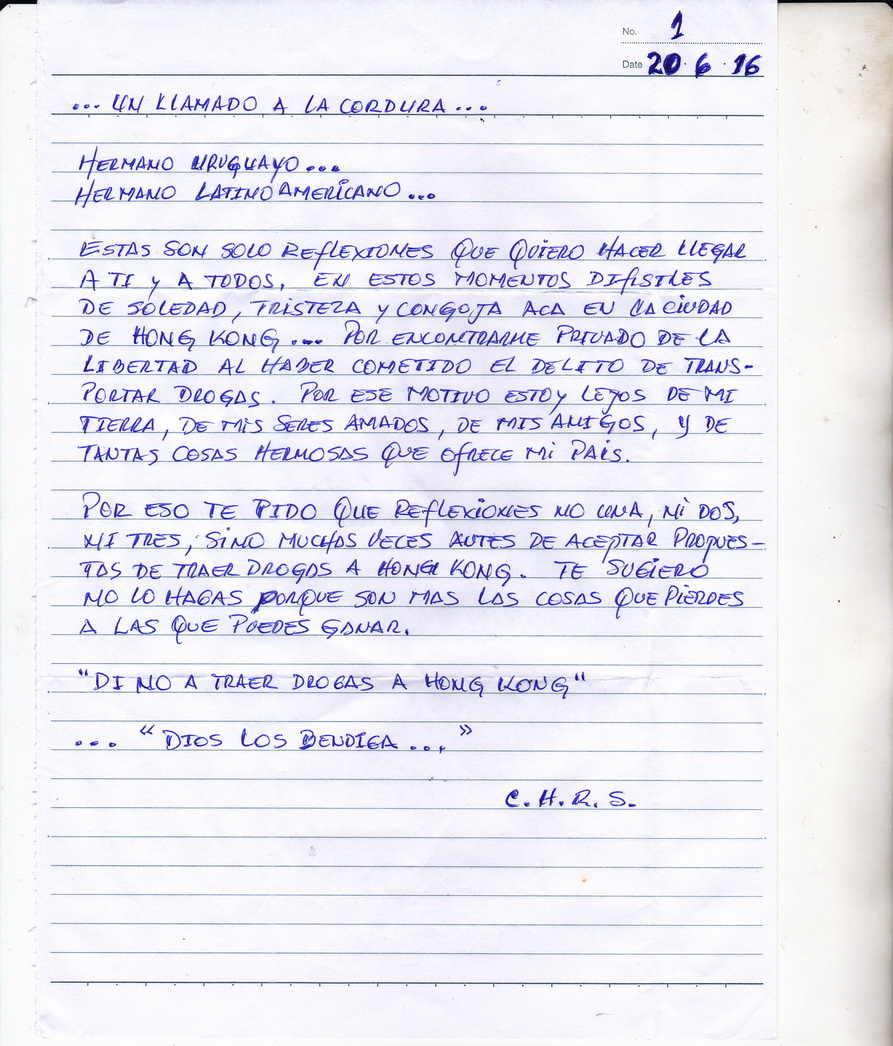 No. 1
Date 20 · 6 · 16
... UN LLAMADO A LA CORDURA ...
HERMANO URUGUAYO...
HERMANO LATINOAMERICANO...
ESTAS SON SOLO REFLEXIONES QUE QUIERO HACER LLEGAR
A TI y A TODOS, EN ESTOS MOMENTOS DIFISILES
DE SOLEDAD, TRISTEZA y CONGOJA ACA EN LA CIUDAD
DE HONG KONG... POR ENCONTRARME PRIVADO DE LA
LIBERTAD AL HABER COMETIDO EL DELITO DE TRANS-
PORTAR DROGAS. POR ESE MOTIVO ESTOY LEJOS DE MI
TIERRA, DE MIS SERES AMADOS, DE MIS AMIGOS, y DE
TANTAS COSAS HERMOSAS QUE OFRECE MI PAIS.
POR ESO TE PIDO QUE REFLEXIONES NO UNA, NI DOS,
NI TRES, SINO MUCHAS VECES ANTES DE ACEPTAR PROPUES-
TAS DE TRAER DROGAS A HONG KONG. TE SUGIERO
NO LO HAGAS PORQUE SON MAS LAS COSAS QUE PIERDES
A LAS QUE PUEDES GANAR.
"DI NO A TRAER DROGAS A HONG KONG"
... "DIOS LOS BENDIGA..."
C.H.R.S.